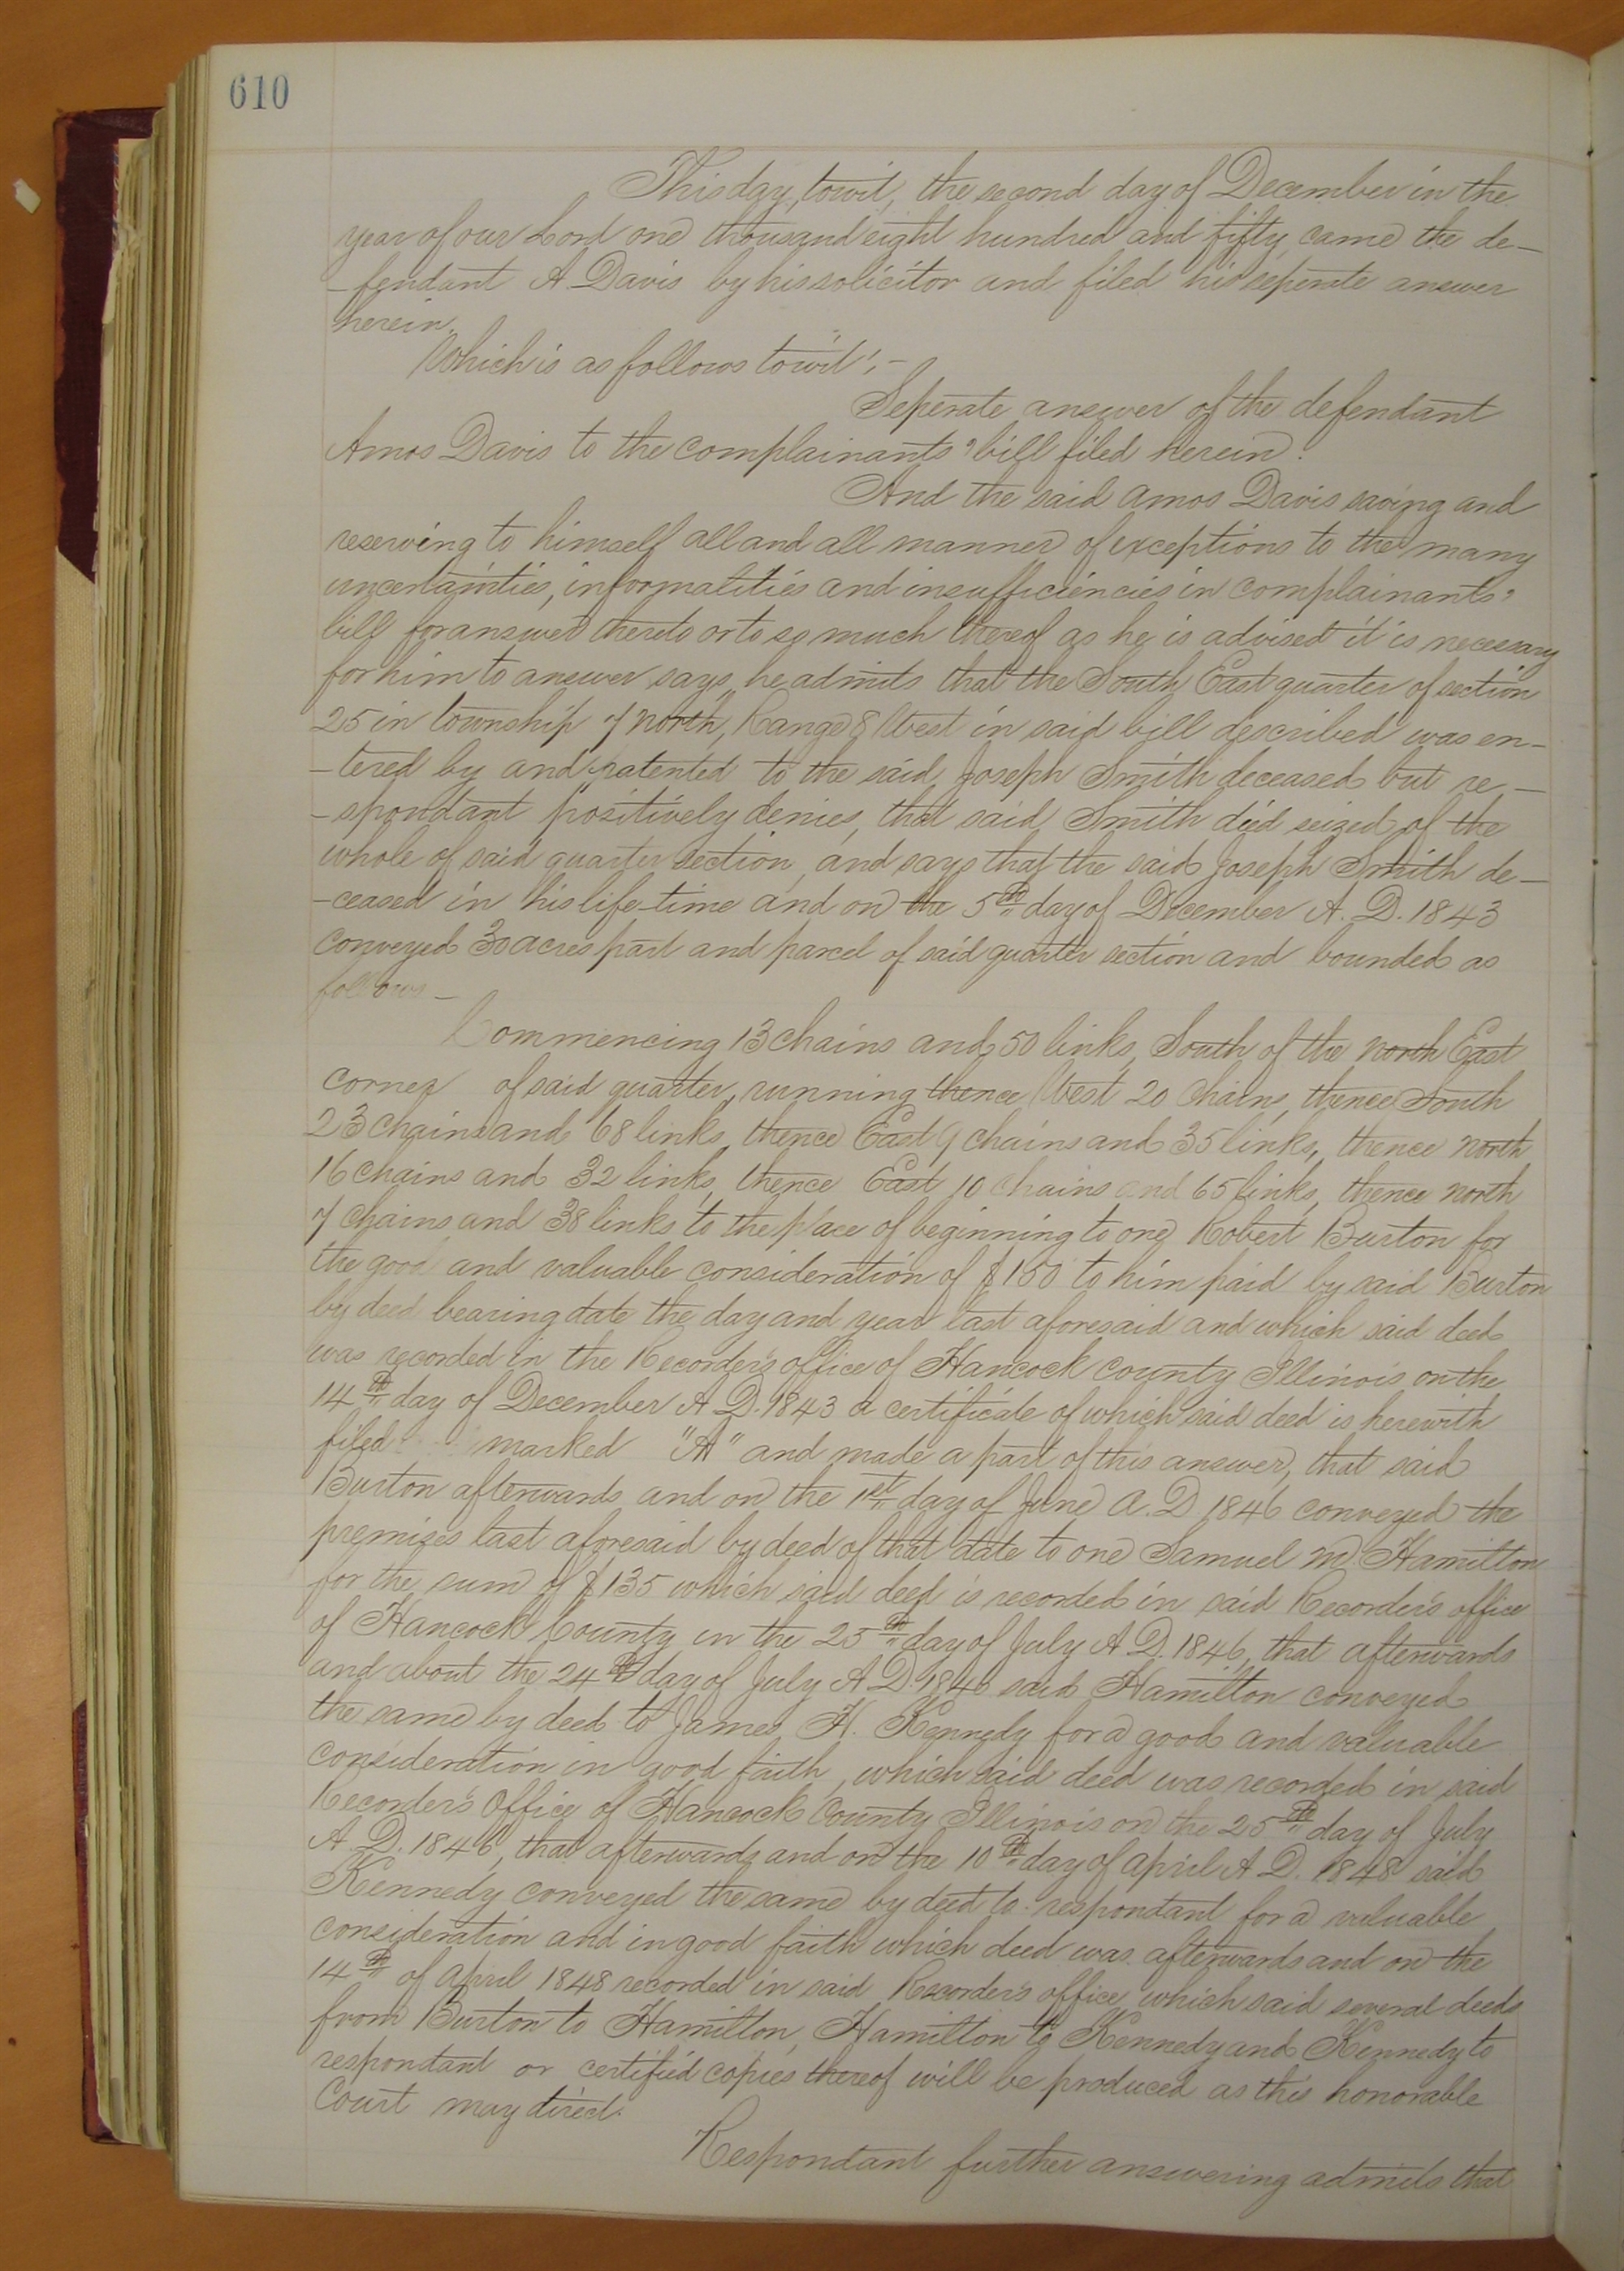 610
This day, towit, the second day of December in the
year of our Lord one thousand eight hundred and fifty came the de-
-fendant A Davis by his solicitor and filed his seperate answer
herein.
Which is as follows towit, -
Seperate answer of the defendant
Amos Davis to the complainants' bill filed herein.
And the said Amos Davis saving and
reserving to himself all and all manner of exceptions to the many
uncertainties, informalities and insufficiencies in complainants'
bill for answer thereto or to so much thereof as he is advised it is necessary
for him to answer says, he admits that the South East quarter of section
25 in township 7 North, Range 8 West in said bill described was en-
-tered by and patented to the said Joseph Smith deceased but re-
-spondant positively denies, that said Smith died seized of the
whole of said quarter section, and says that the said Joseph Smith de-
-ceased in his life-time and on the 5th day of December A. D. 1843
conveyed 30 acres part and parcel of said quarter section and bounded as
follows -
Commencing 13 chains and 50 links, South of the North East
corner of said quarter, running thence West 20 chains, thence South
23 chains and 68 links, thence East 9 chains and 35 links, thence north
16 chains and 32 links, thence East 10 chains and 65 links, thence north
7 chains and 38 links to the place of beginning to one Robert Burton for
the good and valuable consideration of $100 to him paid by said Burton
by deed bearing date the day and year last aforesaid and which said deed
was recorded in the Recorder's office of Hancock county Illinois on the
14th day of December A D. 1843 a certificate of which said deed is herewith
filed marked "A" and made a part of this answer, that said
Burton afterwards and on the 1st day of June A. D 1846 conveyed the
premises last aforesaid by deed of that date to one Samuel M Hamilton
for the sum of $135 which said deed is recorded in said Recorder's office
of Hancock County in the 25th day of July A D. 1846, that afterwards
and about the 24th day of July A D. 1846 said Hamilton conveyed
the same by deed to James H. Kennedy for a good and valuable
consideration in good faith, which said deed was recorded in said
Recorder's Office of Hancock County Illinois on the 25th day of July
A. D. 1846, that afterwards and on the 10th day of April A D. 1848 said
Kennedy conveyed the same by deed to respondant for a valuable
consideration and in good faith which deed was afterwards and on the
14th of April 1848 recorded in said Recorder's office, which said several deeds
from Burton to Hamilton, Hamilton to Kennedy and Kennedy to
respondant or certified copies thereof will be produced as this honorable
Court may direct.
Respondant further answering admits that